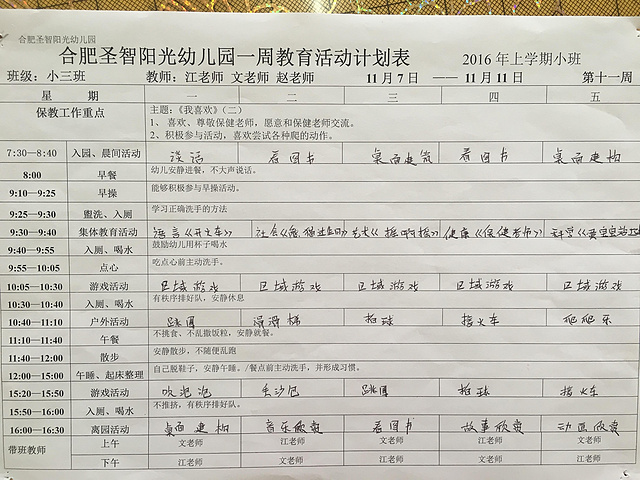 合肥圣智阳光幼儿园
合肥圣智阳光幼儿园一周教育活动计划表 2016 年上学期小班
班级：小三班 教师：江老师 文老师 赵老师 11 月 7 日 —— 11 月 11 日 第十一周
星 期 一 二 三 四 五
保教工作重点 主题：《我喜欢》（二）
1、 喜欢、尊敬保健老师，愿意和保健老师交流。
2、积极参与活动，喜欢尝试各种爬的动作。
7:30—8:40 入园、晨间活动 谈话 看图书 桌面建筑 看图书 桌面建构
8:00 早餐 幼儿安静进餐，不大声说话。
9:10—9:25 早操 能够积极参与早操活动。
9:25—9:30 盥洗、入厕 学习正确洗手的方法
9:30—9:40 集体教育活动 语言《开火车》 社会 艺术 健康《保健老师》 科学
9:40—9:55 入厕、喝水 鼓励幼儿用杯子喝水
9:55—10:05 点心 吃点心前主动洗手。
10:05—10:30 游戏活动 区域游戏 区域游戏 区域游戏 区域游戏 区域游戏
10:30—10:40 入厕、喝水 有秩序排好队，安静休息
10:40—11:10 户外活动 跳圈 滑滑梯 拍球 搭火车 爬爬乐
11:10—11:40 午餐 不挑食、不乱撒饭粒，安静就餐。
11:40—12:00 散步 安静散步，不随便乱跑
12:00—15:00 午睡、起床整理 自己脱鞋子，安静午睡。/餐点前主动洗手，并形成习惯。
15:20—15:50 游戏活动 吹泡泡 丢沙包 跳圈 拍球 搭火车
15:50—16:00 入厕、喝水 不推挤，有秩序排好队。
16:00—16:30 离园活动 桌面建构 音乐欣赏 看图书 故事欣赏 动画欣赏
带班教师 上午 文老师 江老师 文老师 江老师 文老师
下午 江老师 文老师 江老师 文老师 江老师